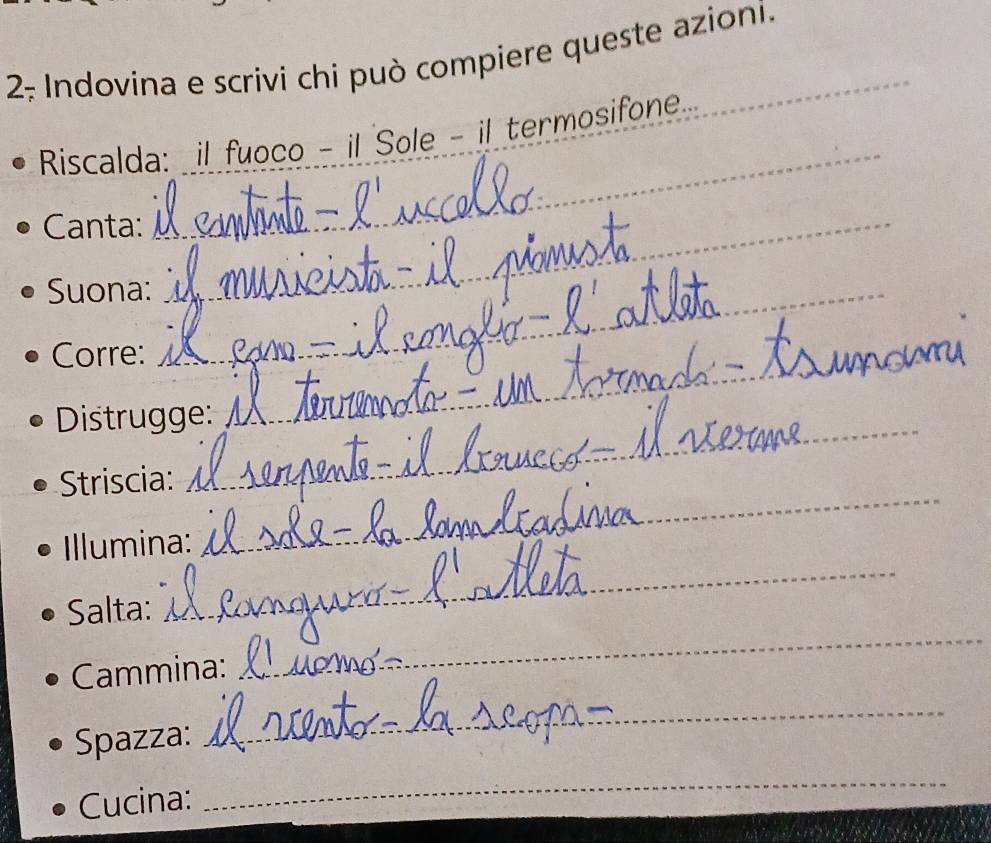 2- Indovina e scrivi chi può compiere queste azioni.
• Riscalda: il fuoco - il Sole - il termosifone...
• Canta: il cantante - l'uccello
• Suona: il musicista - il pianista
• Corre: il cane - il coniglio - l'atleta
• Distrugge: il terremoto - un tornado - tsunami
• Striscia: il serpente - il bruco - il verme
• Illumina: il sole - la lampadina
• Salta: il canguro - l'atleta
• Cammina: l'uomo -
• Spazza: il vento - la scopa -
• Cucina: